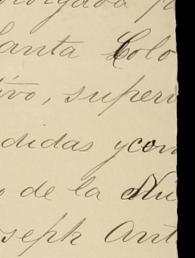 otorgada p
Santa Colo
tivo, superv
didas y con
o de la Nu
oseph Ant